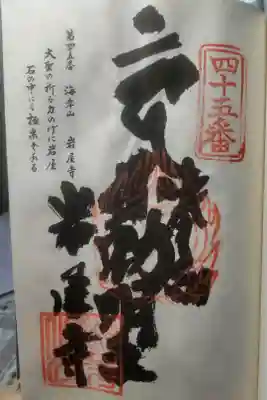 四十五番
不動明王
岩屋寺
第四五番 海岸山 岩屋寺
大聖の祈る力のげに岩屋
石の中にも極楽ぞある